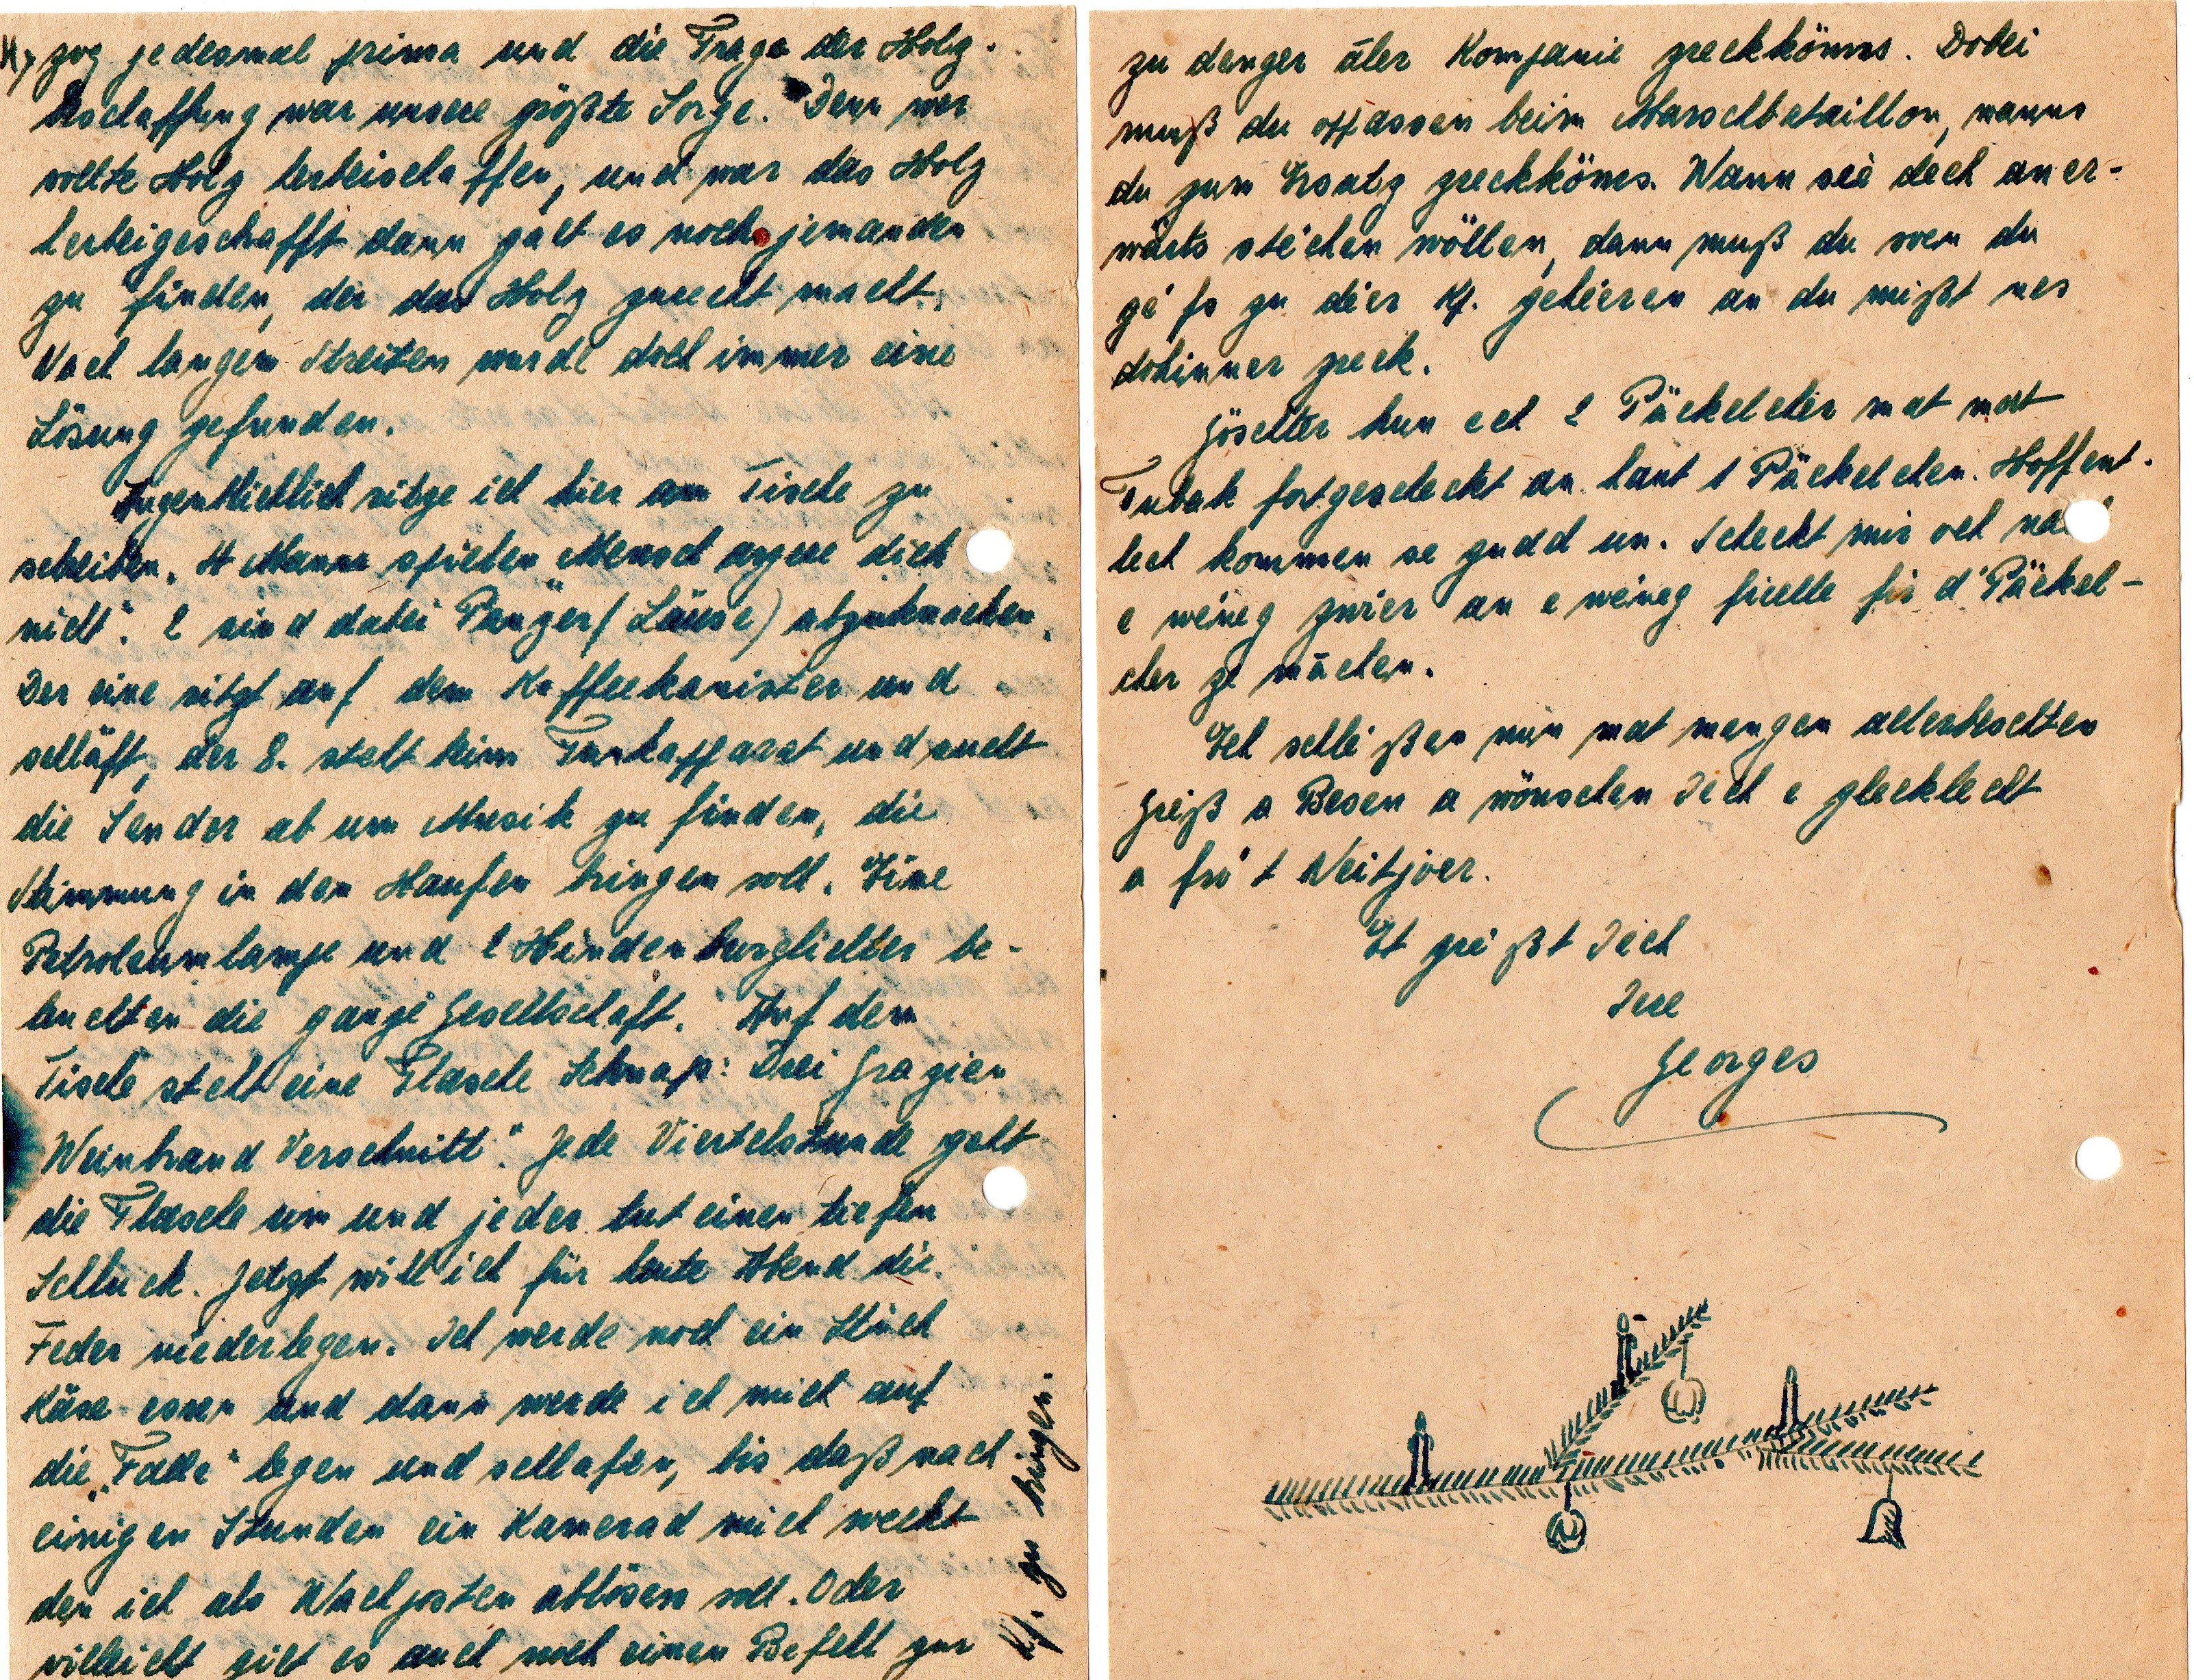 4) zog jedesmal prima und die Frage der Holz-
beschaffung war unsere größte Sorge. Denn wer
sollte Holz herbeischaffen, und war das Holz
herbeigeschafft dann galt es noch jemanden
zu finden, der das Holz zurecht macht.
Nach langem Streiten wurde doch immer eine
Lösung gefunden.
Augenblicklich sitze ich hier am Tische zu
schreiben. 4 Mann spielen Mensch ärgere dich
nicht". 2 sind dabei "Panzer (Läuse) abzuknacken.
Der eine sitzt auf dem Kaffeekanister und
schläft, der 8. steht beim Funkapparat und sucht
die Sender ab um Musik zu finden, die
Stimmung in den Haufen bringen soll. Eine
Petroleumlampe und 2 Hindenburglichter be-
leuchten die ganze Gesellschaft. Auf dem
Tische steht eine Flasche Schnaps: Drei Grazien
Weinbrand Verschnitt". Jede Viertelstunde geht
die Flasche um und jeder tut einen tiefen
Schluck. Jetzt will ich für heute Abend die
Feder niederlegen. Ich werde noch ein Stück
Käse essen und dann werde ich mich auf
die „Falle" legen und schlafen, bis daß nach
einigen Stunden ein Kamerad mich weckt
den ich als Wachposten ablösen soll. Oder
vielleicht gibt es auch noch einen Befehl zur
Kp. zu bringen.
zu denger aler Kompanie zreckköms. Dobei
muß du oppassen beim Marschbataillon, wanns
du zum Ersatz zreckköms. Wann sie dech aner-
wärts stéchen wöllen, dann muß du soen du
gé fs zu dier Kp. gehéieren an du mißt nes
dohinner zreck.
Göschter hun ech 2 Päckelcher mat
Tubak fortgescheckt an haut 1 Päckelchen. Hoffent-
lech kommen se gudd un. Scheckt mir och
e wéineg zwier an e wéineg ficelle fir d'Päckel-
cher ze māchen.
Ech schléißen nun mat mengen allerbeschten
Gréiß a Besen a wönschen Iech e glecklecht
a fréi't Neitjoer.
Et gréißt Iech
Iere
Georges